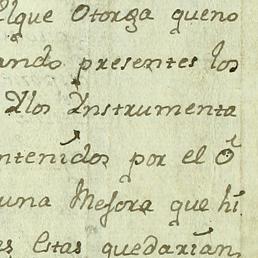 elque Otorga queno
ando presentes los
Ylos Ynstrumenta
ntenidos por el Ōl
una Mesora que hi
es Estas quedarian